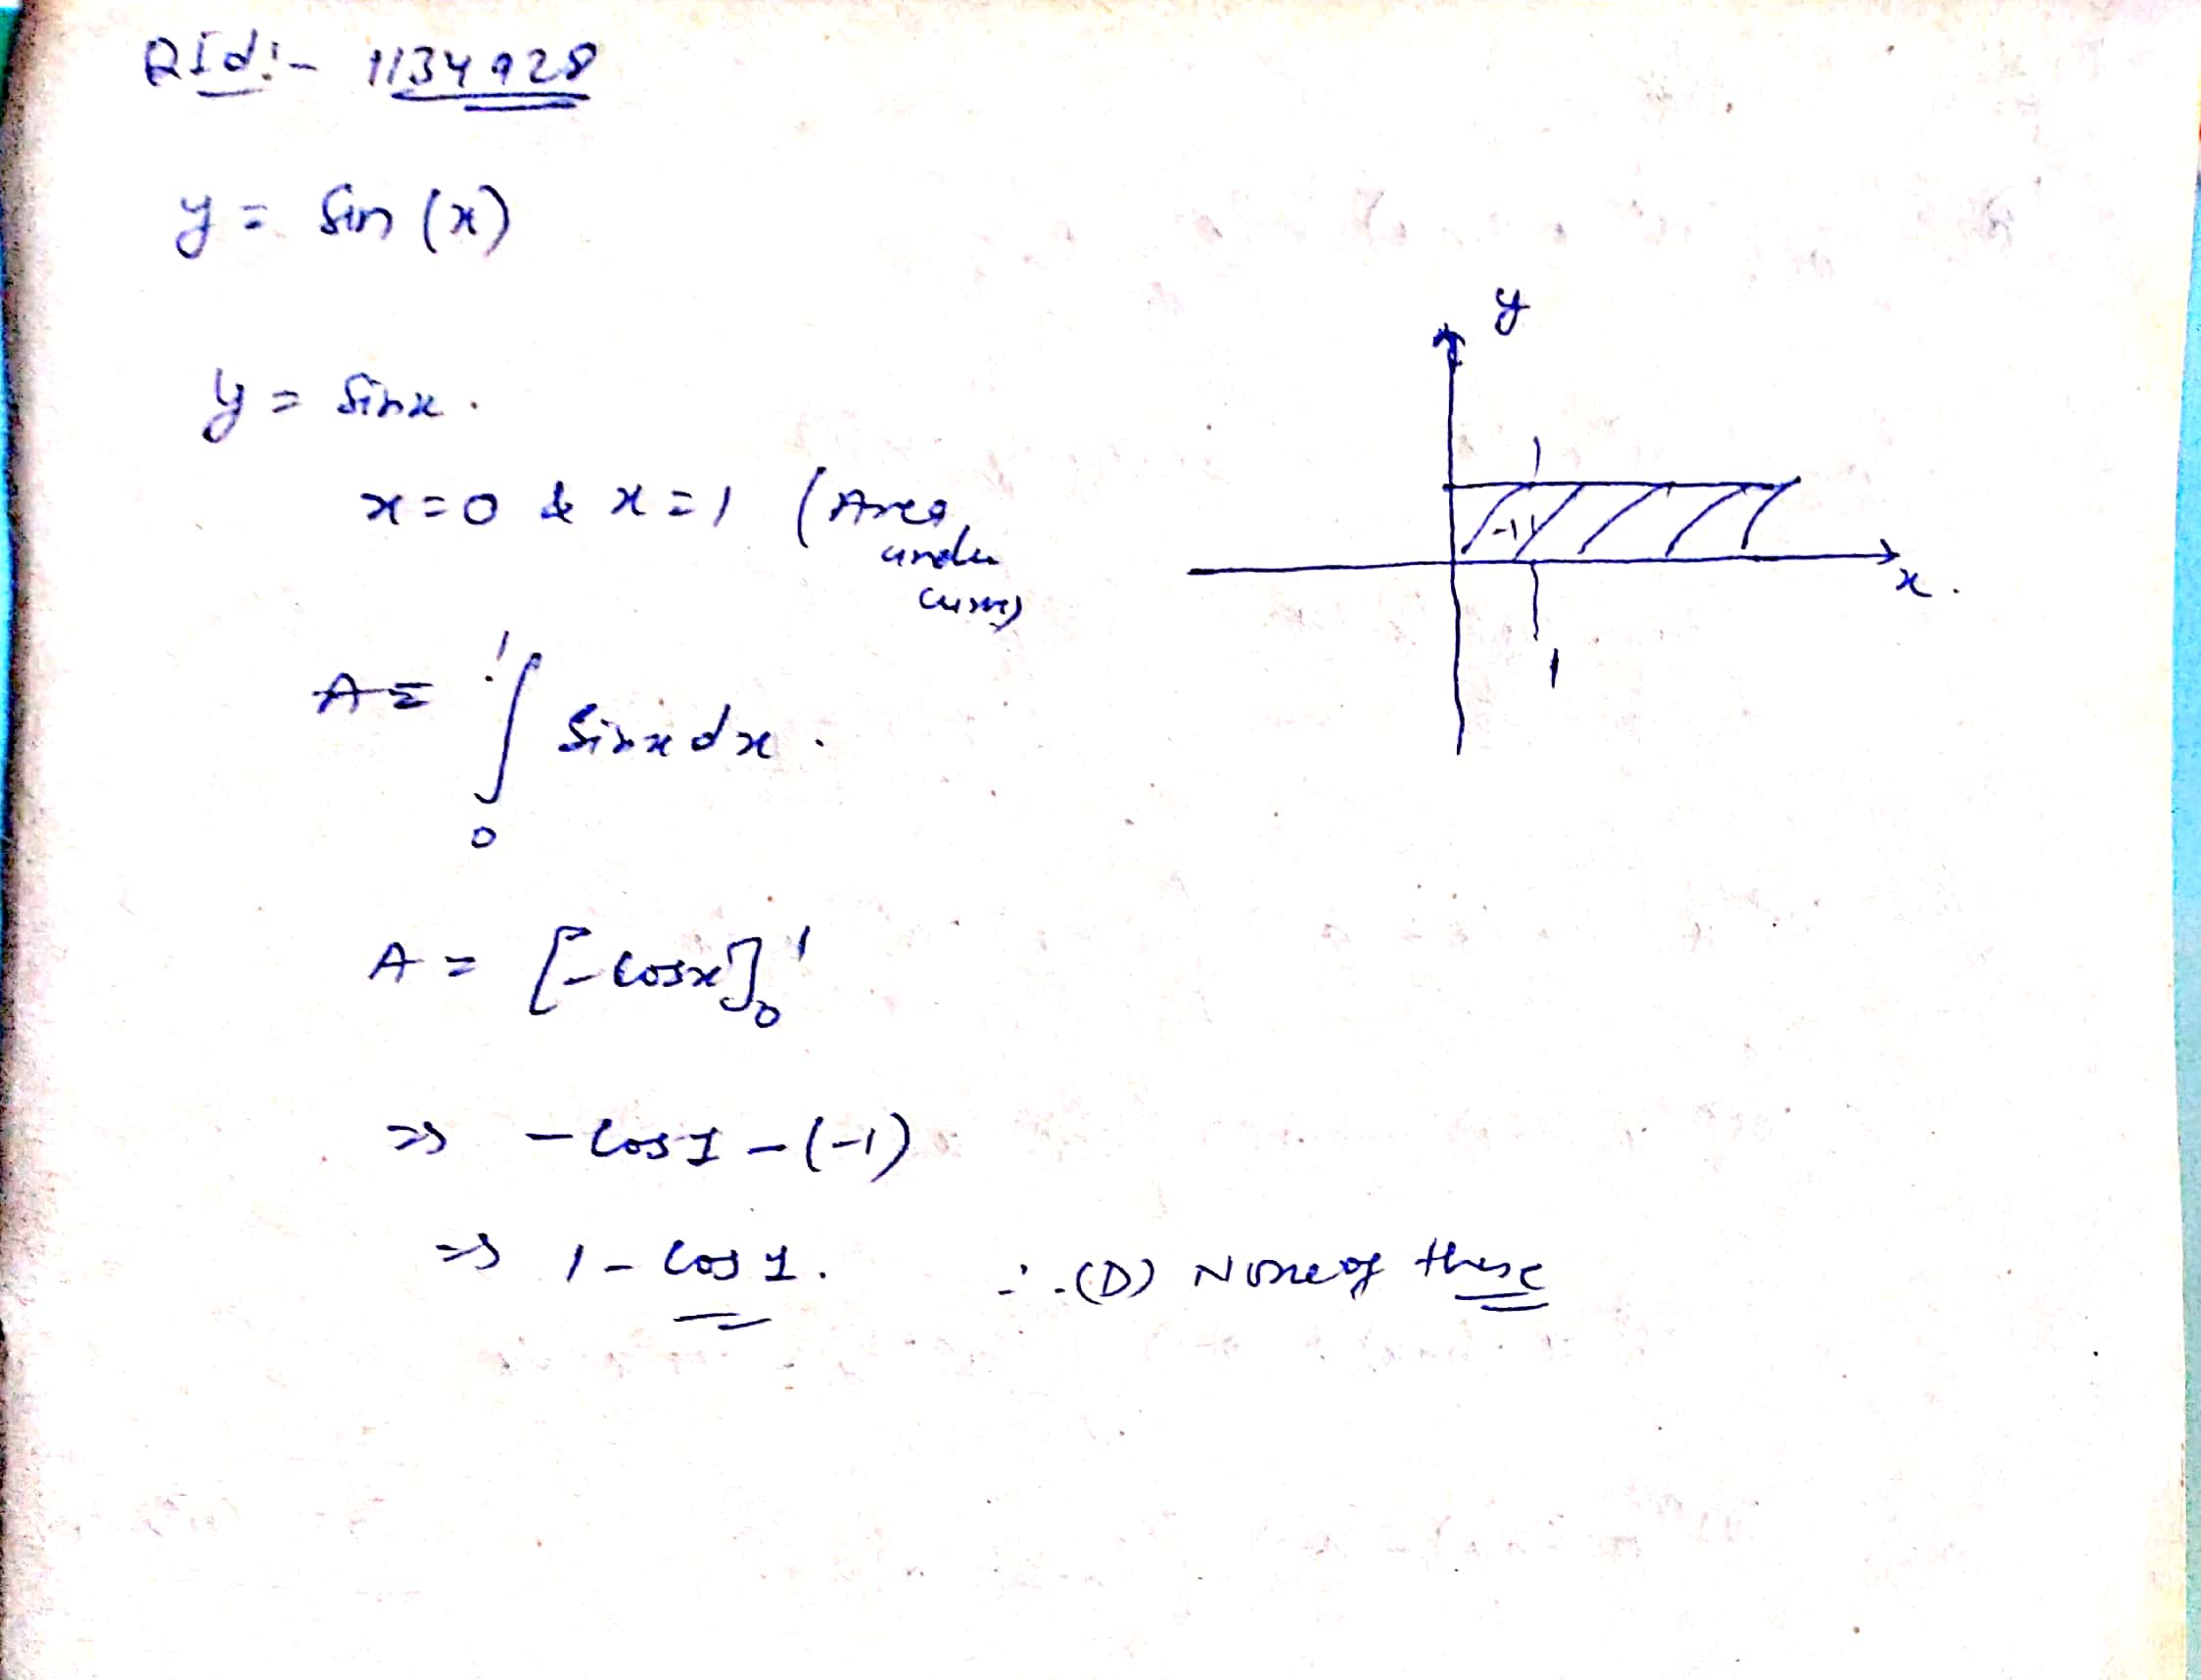 QId:- 1134928
y = Sin (x)
y = Sinx.
x=0 & x=1 (Area
under
curve)
A = ∫₀¹ Sinxdx.
A = [-cosx]₀¹
=> -Cos1 -(-1)
=> 1 - Cos 1. ∴ (D) None of these
y
x.
1